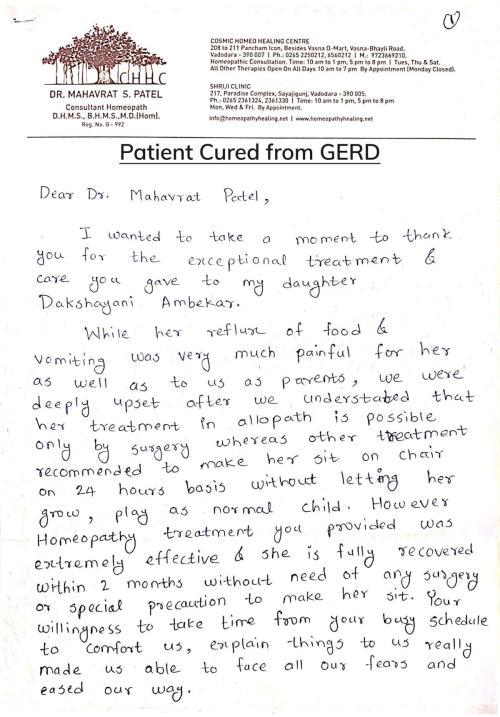 COSMIC HOMEO HEALING CENTRE
208 to 211 Pancham Icon, Besides Vasna D-Mart, Vasna-Bhayli Road,
Vadodara - 390 007 | Ph.: 0265 2250212, 6560212 | M.: 9723669210.
Homeopathic Consultation, Time: 10 am to 1 pm, 5 pm to 8 pm | Tues, Thu & Sat.
All Other Therapies Open On All Days 10 am to 7 pm By Appointment (Monday Closed).
CHHC
DR. MAHAVRAT S. PATEL
Consultant Homeopath
D.H.M.S., B.H.M.S.,M.D.(Hom).
Reg. No. G - 992
SHRIJI CLINIC
217, Paradise Complex, Sayajigunj, Vadodara - 390 005.
Ph.: 0265 2361324, 2361330 | Time: 10 am to 1 pm, 5 pm to 8 pm
Mon, Wed & Fri. By Appointment.
info@homeopathyhealing.net | www.homeopathyhealing.net
Patient Cured from GERD
Dear Dr. Mahavrat Patel,
I wanted to take a moment to thank
you for the exceptional treatment &
care you gave to my daughter
Dakshayani Ambekar.
While her reflux of food &
vomiting was very much painful for her
as well as to us as parents, we were
deeply upset after we understabd that
her treatment in allopath is possible
only by surgery whereas other treatment
recommended to make her sit on chair
on 24 hours basis without letting her
grow, play as normal child. However
Homeopathy treatment you provided was
extremely effective & she is fully recovered
within 2 months without need of any surgery
or special precaution to make her sit. Your
willingness to take time from your busy schedule
to comfort us, explain things to us really
made us able to face all our fears and
eased our way.